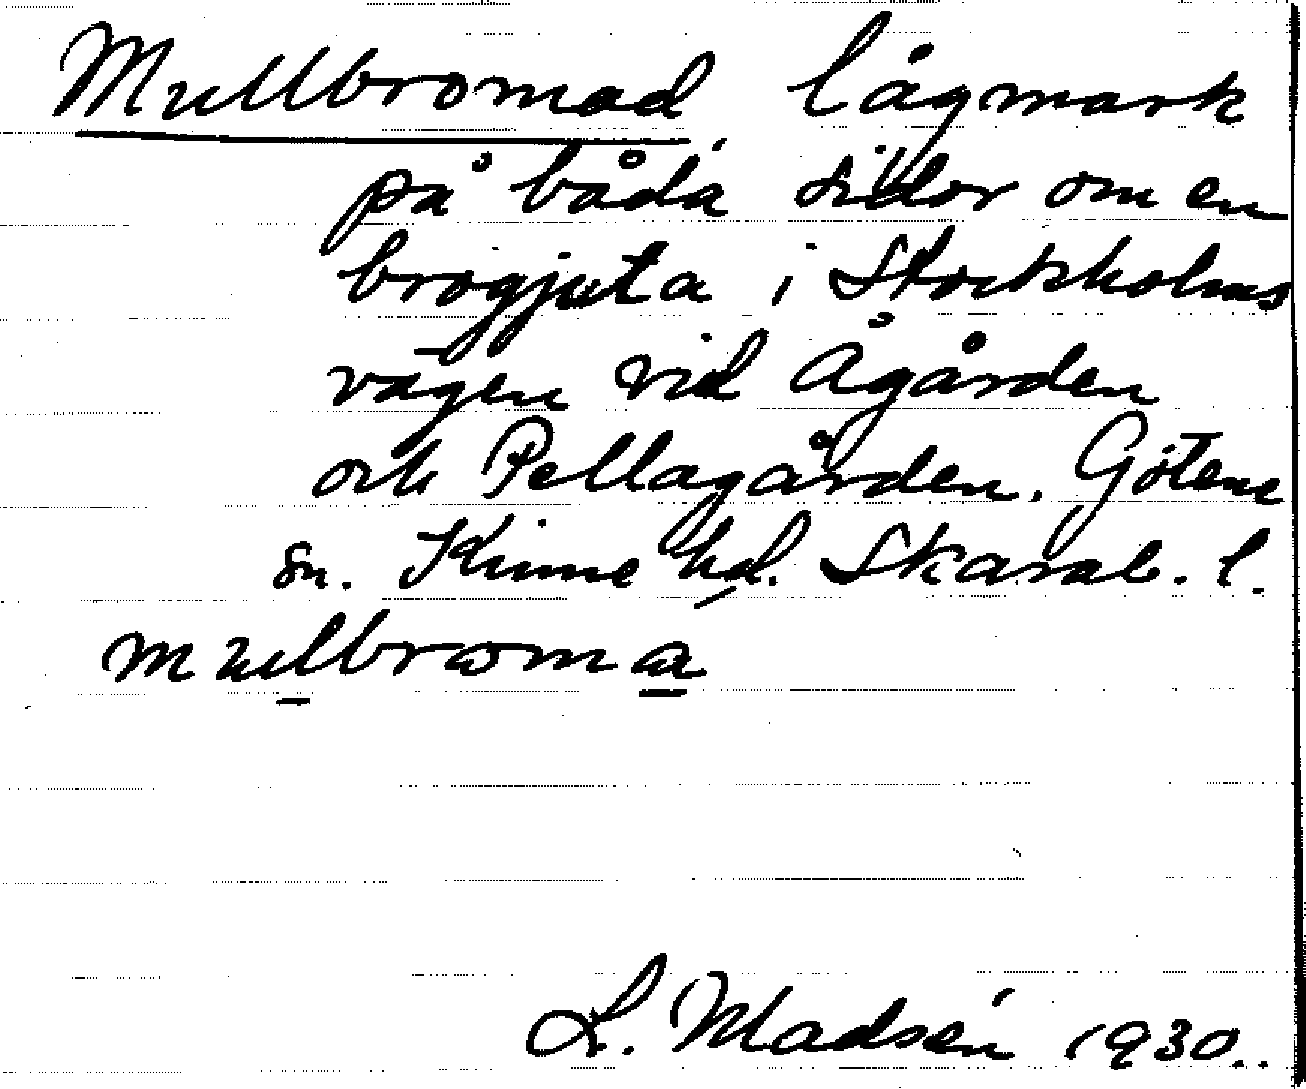 Mullbromad, lågmark
på båda sidor om en
brogjuta i Stockholms
vägen vid Ågården
och Pellagården. Götene
sn. Kinne hd. Skarab. l.
mullbroma
L. Madsén 1930.